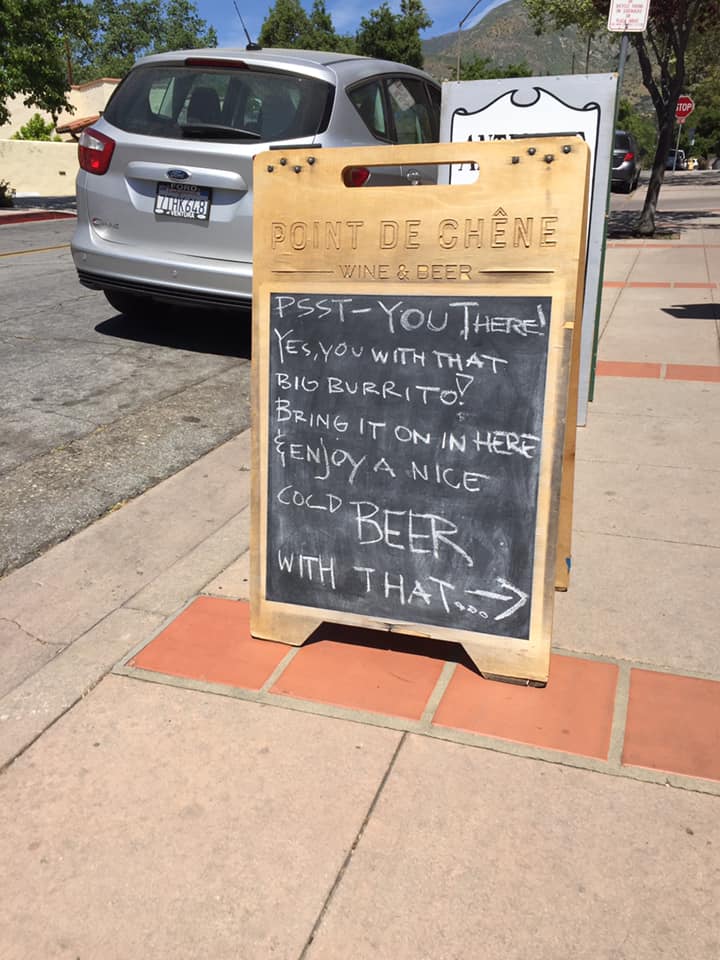 POINT DE CHÊNE
WINE & BEER
PSST-YOU THERE!
YES, YOU WITH THAT
BIG BURRITO!
BRING IT ON IN HERE
& ENJOY A NICE
COLD BEER
WITH THAT...→
Ford
FORD
7THK618
VENTURA
C-MAX
STOP